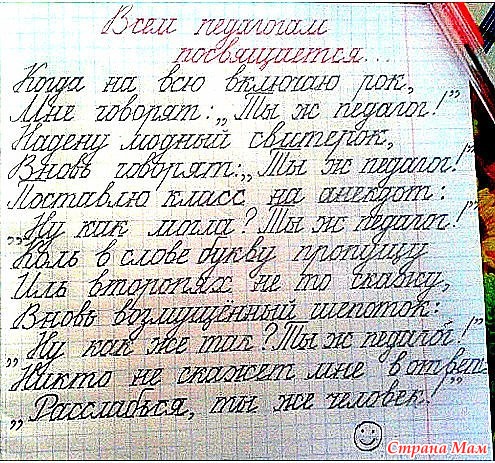 Всем педагогам
посвящается...
Когда на всю включаю рок,
Мне говорят: „Ты ж педагог!”
Надену модный свитерок,
Вновь говорят: „Ты ж педагог!”
Поставлю класс на анекдот:
„Ну как могла? Ты ж педагог!”
Коль в слове букву пропущу
Иль второпях не то скажу,
Вновь возмущённый шепоток:
„Ну как же так? Ты ж педагог!”
Никто не скажет мне в ответ:
„Расслабься, ты же человек!”
Страна Мам